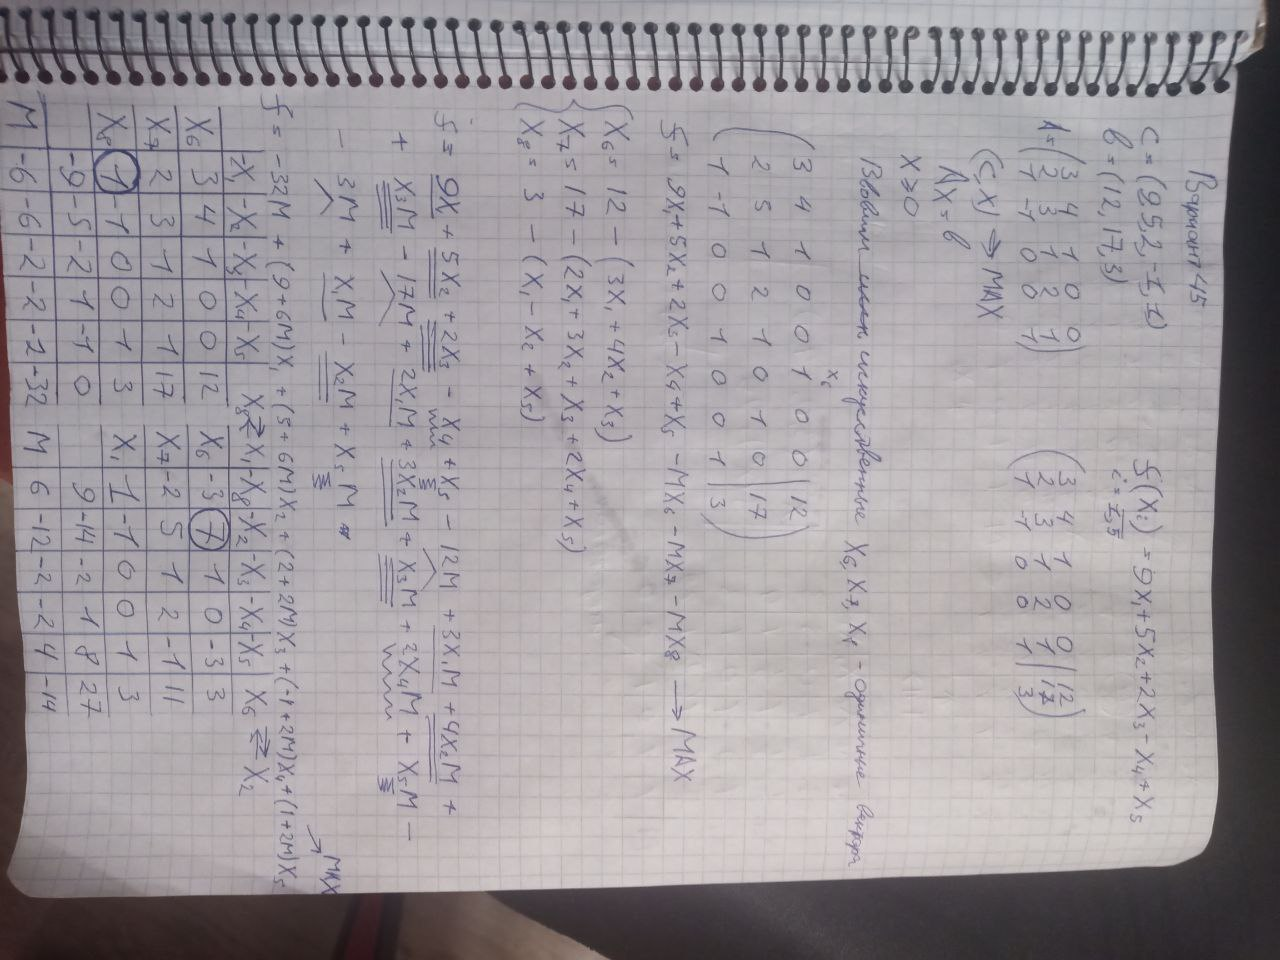 Вариант 45
c = (9,5,2,-1,1)
b = (12,17,3)
A = (3 4 1 0 0
2 3 1 2 1
1 -1 0 0 1)
(c,x) → MAX
Ax = b
x ≥ 0
f(xi) = 9x1 + 5x2 + 2x3 - x4 + x5
i = 1,5
(3 4 1 0 0 | 12
2 3 1 2 1 | 17
1 -1 0 0 1 | 3)
Вводим искусственные x6, x7, x8 - единичные вектора
x6
(3 4 1 0 0 1 0 0 | 12
2 5 1 2 1 0 1 0 | 17
1 -1 0 0 1 0 0 1 | 3)
f = 9x1 + 5x2 + 2x3 - x4 + x5 - Mx6 - Mx7 - Mx8 → MAX
{x6 = 12 - (3x1 + 4x2 + x3)
x7 = 17 - (2x1 + 3x2 + x3 + 2x4 + x5)
x8 = 3 - (x1 - x2 + x5)
f = 9x1 + 5x2 + 2x3 - x4 + x5 - 12M + 3x1M + 4x2M +
+ x3M - 17M + 2x1M + 3x2M + x3M + 2x4M + x5M -
- 3M + x1M - x2M + x5M
f = -32M + (9+6M)x1 + (5+6M)x2 + (2+2M)x3 + (-1+2M)x4 + (1+2M)x5 → MAX
-x1 -x2 -x3 -x4 -x5 x8 ⇄ x1
x6 3 4 1 0 0 12
x7 2 3 1 2 1 17
x8 1 -1 0 0 1 3
-9 -5 -2 1 -1 0
M -6 -6 -2 -2 -2 -32
-x8 -x2 -x3 -x4 -x5 x6 ⇄ x2
x6 -3 7 1 0 -3 3
x7 -2 5 1 2 -1 11
x1 1 -1 0 0 1 3
9 -14 -2 1 8 27
M 6 -12 -2 -2 4 -14